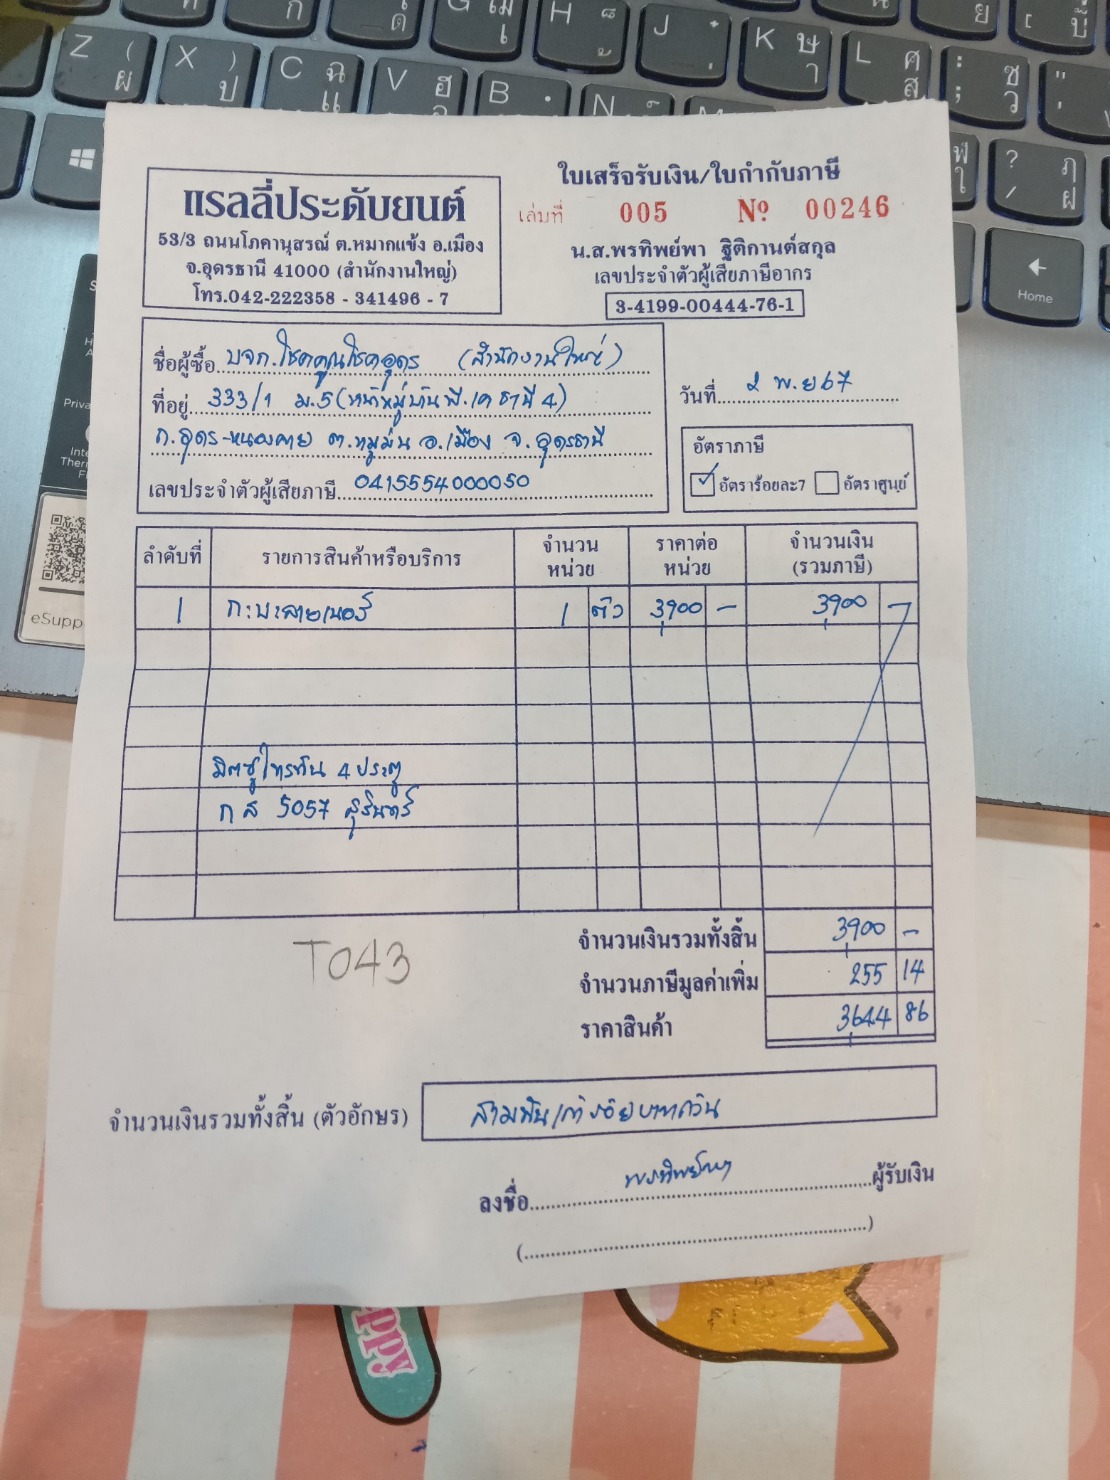 แรลลี่ประดับยนต์
53/3 ถนนโภคานุสรณ์ ต.หมากแข้ง อ.เมือง
จ.อุดรธานี 41000 (สำนักงานใหญ่)
โทร.042-222358 - 341496 - 7
ใบเสร็จรับเงิน/ใบกำกับภาษี
เล่มที่ 005 Nº 00246
น.ส.พรทิพย์พา ฐิติกานต์สกุล
เลขประจำตัวผู้เสียภาษีอากร
3-4199-00444-76-1
ชื่อผู้ซื้อ บจก.โชคคูณโชคอุดร (สำนักงานใหญ่)
ที่อยู่ 333/1 ม.5 (หน้าหมู่บ้านพี.เค ธานี 4)
ถ.อุดร-หนองคาย ต.หมูม่น อ.เมือง จ.อุดรธานี
เลขประจำตัวผู้เสียภาษี 0415554000050
วันที่ 2 พ.ย 67
อัตราภาษี
อัตราร้อยละ7 อัตราศูนย์
ลำดับที่ รายการสินค้าหรือบริการ จำนวนหน่วย ราคาต่อหน่วย จำนวนเงิน (รวมภาษี)
1 ก:บะลายเนอร์ 1 ตัว 3,900 - 3,900 -
มิตซูไทรทัน 4 ประตู
กส 5057 สุรินทร์
จำนวนเงินรวมทั้งสิ้น 3,900 -
จำนวนภาษีมูลค่าเพิ่ม 255 14
ราคาสินค้า 3,644 86
T043
จำนวนเงินรวมทั้งสิ้น (ตัวอักษร) สามพันเก้าร้อยบาทถ้วน
ลงชื่อ พรทิพย์พา ผู้รับเงิน
(
)
Z ( ผ
X ) ป
C ฉ แ
V ฮ
B
N
G
H
J
K ษ า
L ศ ส
: ; ซ ว
? / ฦ ฝ
Home
eSupp
ppy